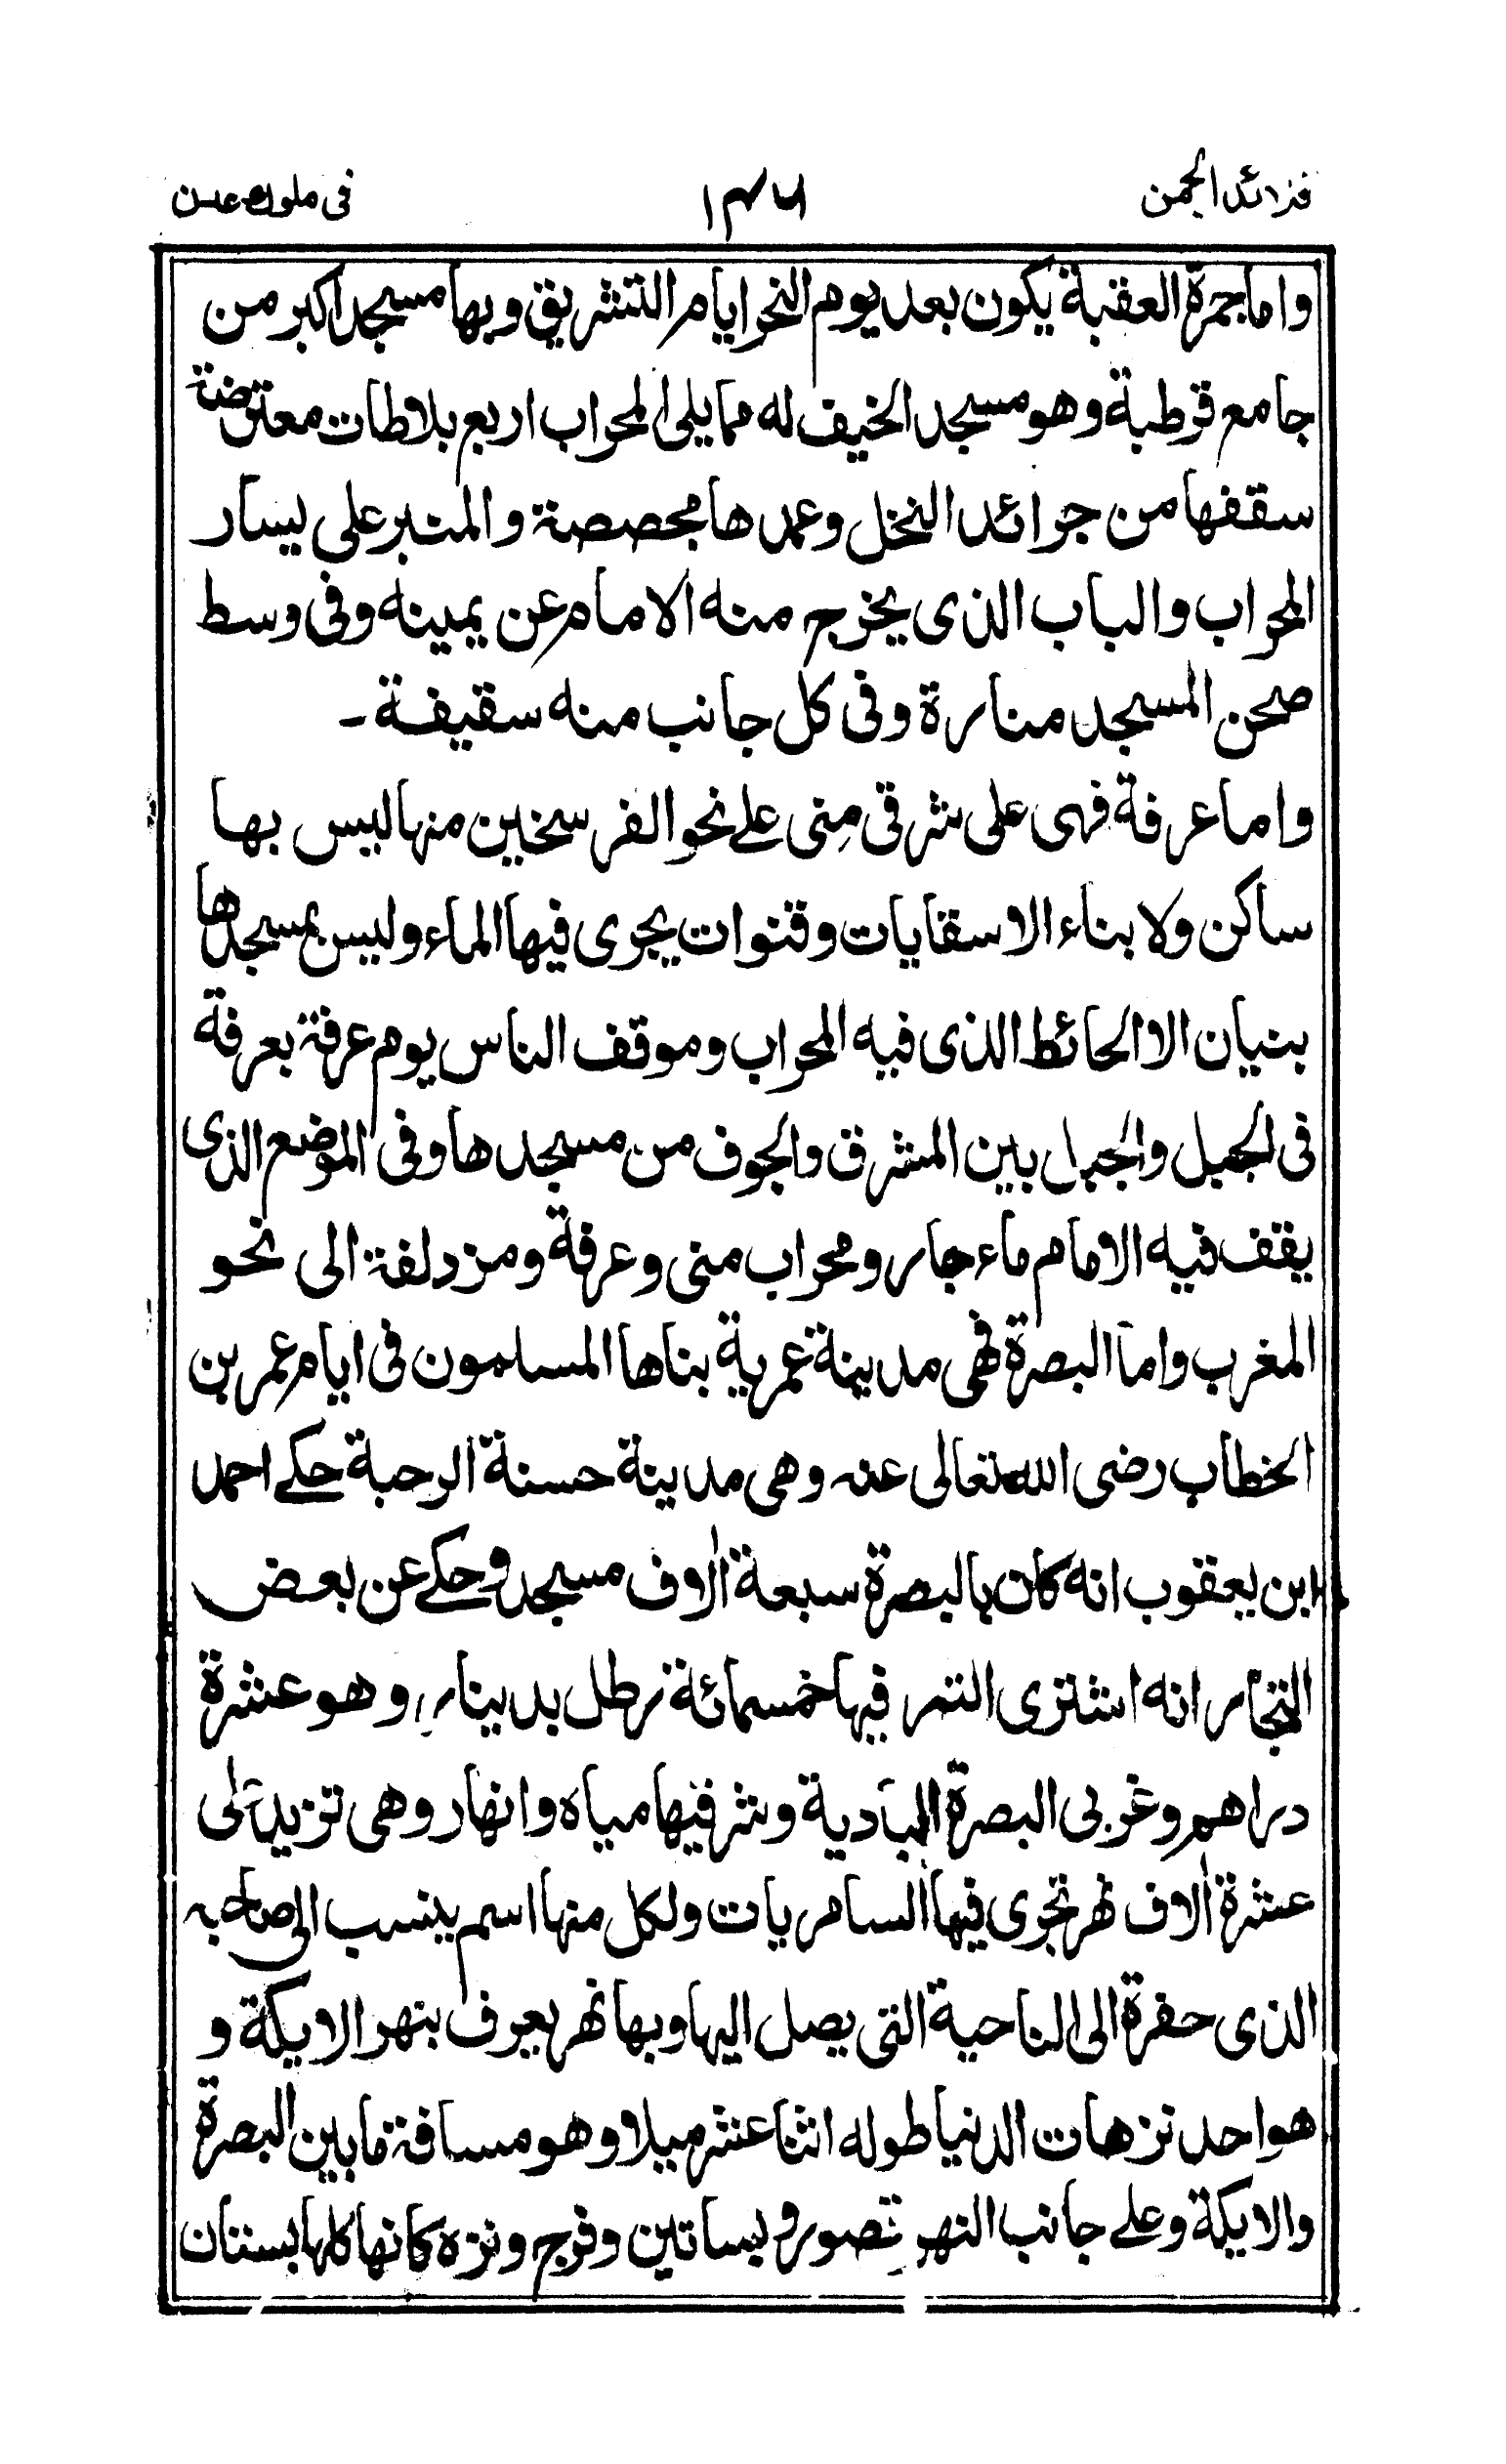 فرائد الجمن
في ملوك عدن
واما جمرة العقبة يكون بعد يوم النحر ايام التشريق وبها مسجد اكبر من
جامع قرطبة وهو مسجد الخيف له مما يلى المحراب اربع بلاطات معترضة
سقفها من جرائد النخل وعمدها مجصصة والمنبر على يسار
المحراب والباب الذى يخرج منه الامام عن يمينه وفى وسط
صحن المسجد منارة وفى كل جانب منه سقيفة ـ
واما عرفة فهى على شرقى مِنى على نحو الفرسخين منها ليس بها
ساكن ولا بناء الا سقايات وقنوات يجرى فيها الماء وليس بمسجدها
بنيان الا الحائط الذى فيه المحراب وموقف الناس يوم عرفة بعرفة
فى الجبل والجبل بين المشرق والجوف من مسجدها وفى الموضع الذى
يقف فيه الامام ماء جار ومحراب منى وعرفة ومزدلفة الى نحو
المغرب واما البصرة فهى مدينة عمرية بناها المسلمون فى ايام عمر بن
الخطاب رضى الله تعالى عنه وهى مدينة حسنة الرحبة حكى احمد
ابن يعقوب انه كان بالبصرة سبعة الاف مسجد وحكى عن بعض
التجار انه اشترى التمر فيها خمسمائة رطل بدينار وهو عشرة
دراهم وغربى البصرة البادية وشرقيها مياه وانهار وهى تزيد على
عشرة الاف نهر تجرى فيها السامريات ولكل منها اسم ينسب الى صاحبه
الذى حفرة الى الناحية التى يصل اليها وبها نهر يعرف بنهر الايكة و
هو احد نزهات الدنيا طوله اثنا عشر ميلا وهو مسافة ما بين البصرة
والايكة وعلى جانب النهر قصور وبساتين وفرج ونزه كانها كلها بستان